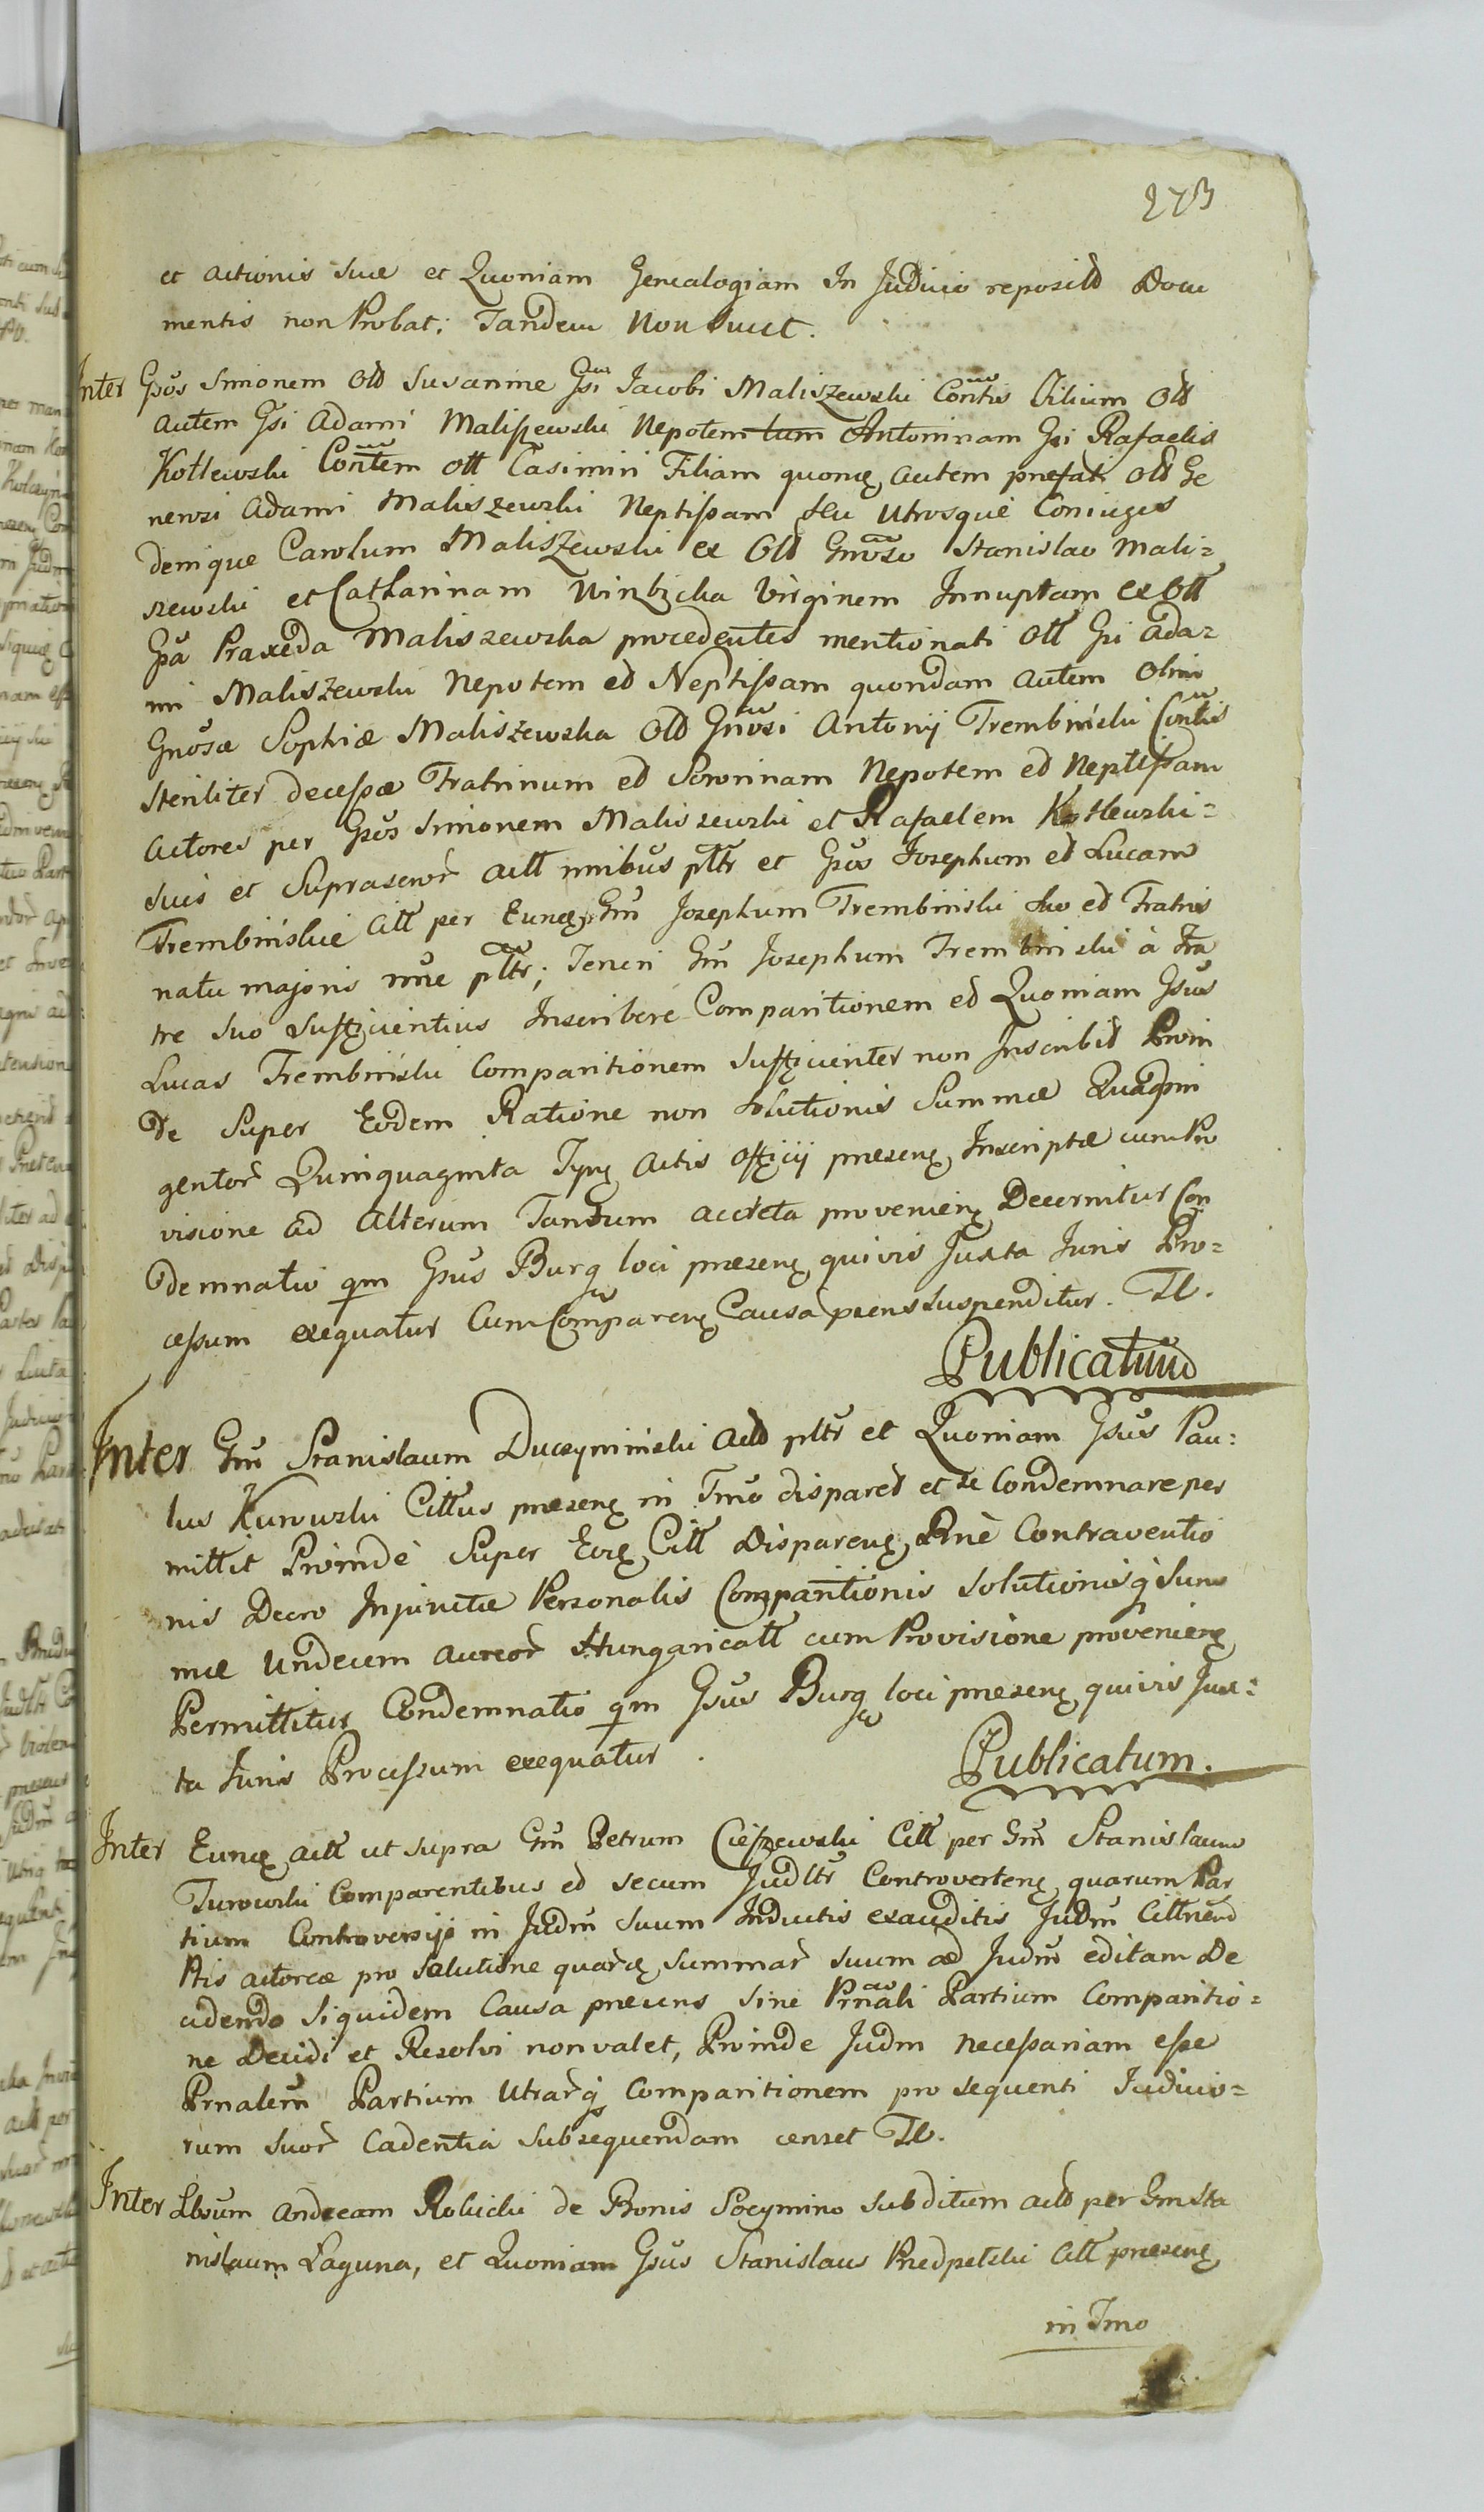 273
et actionis suæ et Quoniam Genealogiam In Judicio reposità Docu
mentis non Probat; Tandem Non Sunt.
Inter Gsos Simonem Olt Susannæ Gsi Jacobi Maliszewski Contis Filium Olt
autem Gsi Adami Maliszewski Nepotem tum Antoninam Gsi Rafaelis
Kotlewski Contem Olt Casimiri Filiam autem præfati Olt Ge
nerosi Adami Maliszewski Neptissam seu Utrosque Coniuges
denique Carolum Maliszewski ex Olt Gnoso Stanislao Mali=
szewski et Catharinam Virginem Innuptam ex Olt
Gsa Praxeda Maliszewska procedentes mentionati Olt Gsi Ada=
mi Maliszewski Nepotem et Neptissam quondam autem Olim
Gnosæ Sophiæ Maliszewska Olt Gnosi Antonij Trembinski Contis
Steriliter decessæ Fratrinum et Sororinam Nepotem et Neptissam
Actores per Gsos Simonem Maliszewski et Rafaelem Kotlewski=
suis et Suprascror actt nnibus pltr et Gsos Josephum et Lucam
Trembinskie Citt per Eunq Gm Josephum Trembinski suo et Fratris
natu majoris nne pltr; Teneri Gm Josephum Trembinski à Fra
tre suo sufficientius Inscribere Comparitionem et Quoniam Gsus
Lucas Trembinski Comparitionem sufficienter non Inscribit Proin
de Super Eodem Ratione non Solutionis Summæ Quadrin
gentor Quinquaginta Typ Actis Officij præsenq Inscriptæ cum Pro
visione ad Alterum Tantum accreta provenienq Decernitur Con
demnatio qm Gsus Burg loci præsenq quivis Juxta Juris Pro=
cessum exequatur Cum Comparenq Causa præns suspenditur. Tl.
Publicatum
Inter Gm Stanislaum Duczyminski actt pltr et Quoniam Gsus Pau=
lus Kurowski Cittus præsenq in Tmo disparet et se Condemnare per
mittit Proindè Super Eoq Citt Disparenq Rnè Contraventio
nis Decro Injunctæ Personalis Comparitionis Solutionisq Sum
mæ Undecim aureor Hungaricalt cum Provisione provenienq
Permittitur Condemnatio qm Gsus Burg loci præsenq quivis Jux=
ta Juris Processum exequatur.
Publicatum.
Inter Eunq actt ut supra Gm Petrum Cieszewski Citt per Gm Stanislaum
Turowski Comparentibus et secum Judltr Controvertenq quarum Par
tium Controversijs in Judm suum Inductis exauditis Judm
Ptis actoreæ pro solutione quarq Summar suum ad Judm editam De
cidendo Siquidem Causa præns sine Prnali Partium Comparitio=
ne Decidi et Resolvi non valet, Proinde Judm Necessariam esse
Prnalem Partium Utrarq Comparitionem pro sequenti Judicio=
rum suor Cadentia Subsequendam censet Tl.
Inter Lbsum Andream Robicki de Bonis Poczymino Subditum actt per Gm Sta
nislaum Laguna, et Quoniam Gsus Stanislaus Przedpelski Citt præsenq
in Tmo